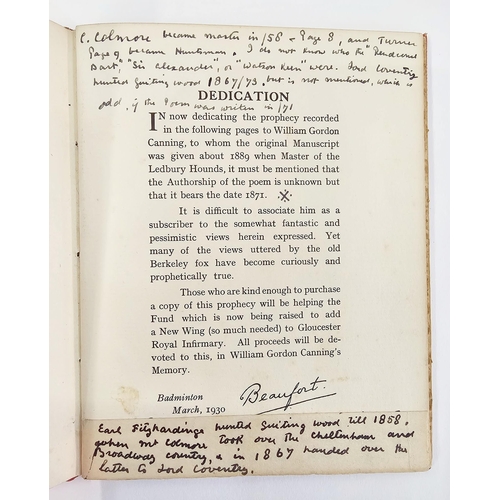 C. Colmore became master in /58 - Page 8, and Turner
Page 9 became Huntsman. I do not know who the "Renderend
Bart," "Sir Alexander", or "Watson Keen" were. Lord Coventry
hunted Guiting wood 1867/73, but is not mentioned, which is
odd, if the Poem was written in /71
DEDICATION
IN now dedicating the prophecy recorded
in the following pages to William Gordon
Canning, to whom the original Manuscript
was given about 1889 when Master of the
Ledbury Hounds, it must be mentioned that
the Authorship of the poem is unknown but
that it bears the date 1871.
It is difficult to associate him as a
subscriber to the somewhat fantastic and
pessimistic views herein expressed. Yet
many of the views uttered by the old
Berkeley fox have become curiously and
prophetically true.
Those who are kind enough to purchase
a copy of this prophecy will be helping the
Fund which is now being raised to add
a New Wing (so much needed) to Gloucester
Royal Infirmary. All proceeds will be de-
voted to this, in William Gordon Canning's
Memory.
Badminton
March, 1930
Beaufort.
Earl Fitzhardinge hunted Guiting wood till 1858,
when Mr Colmore took over the Cheltenham and
Broadway country, & in 1867 handed over the
latter to Lord Coventry.